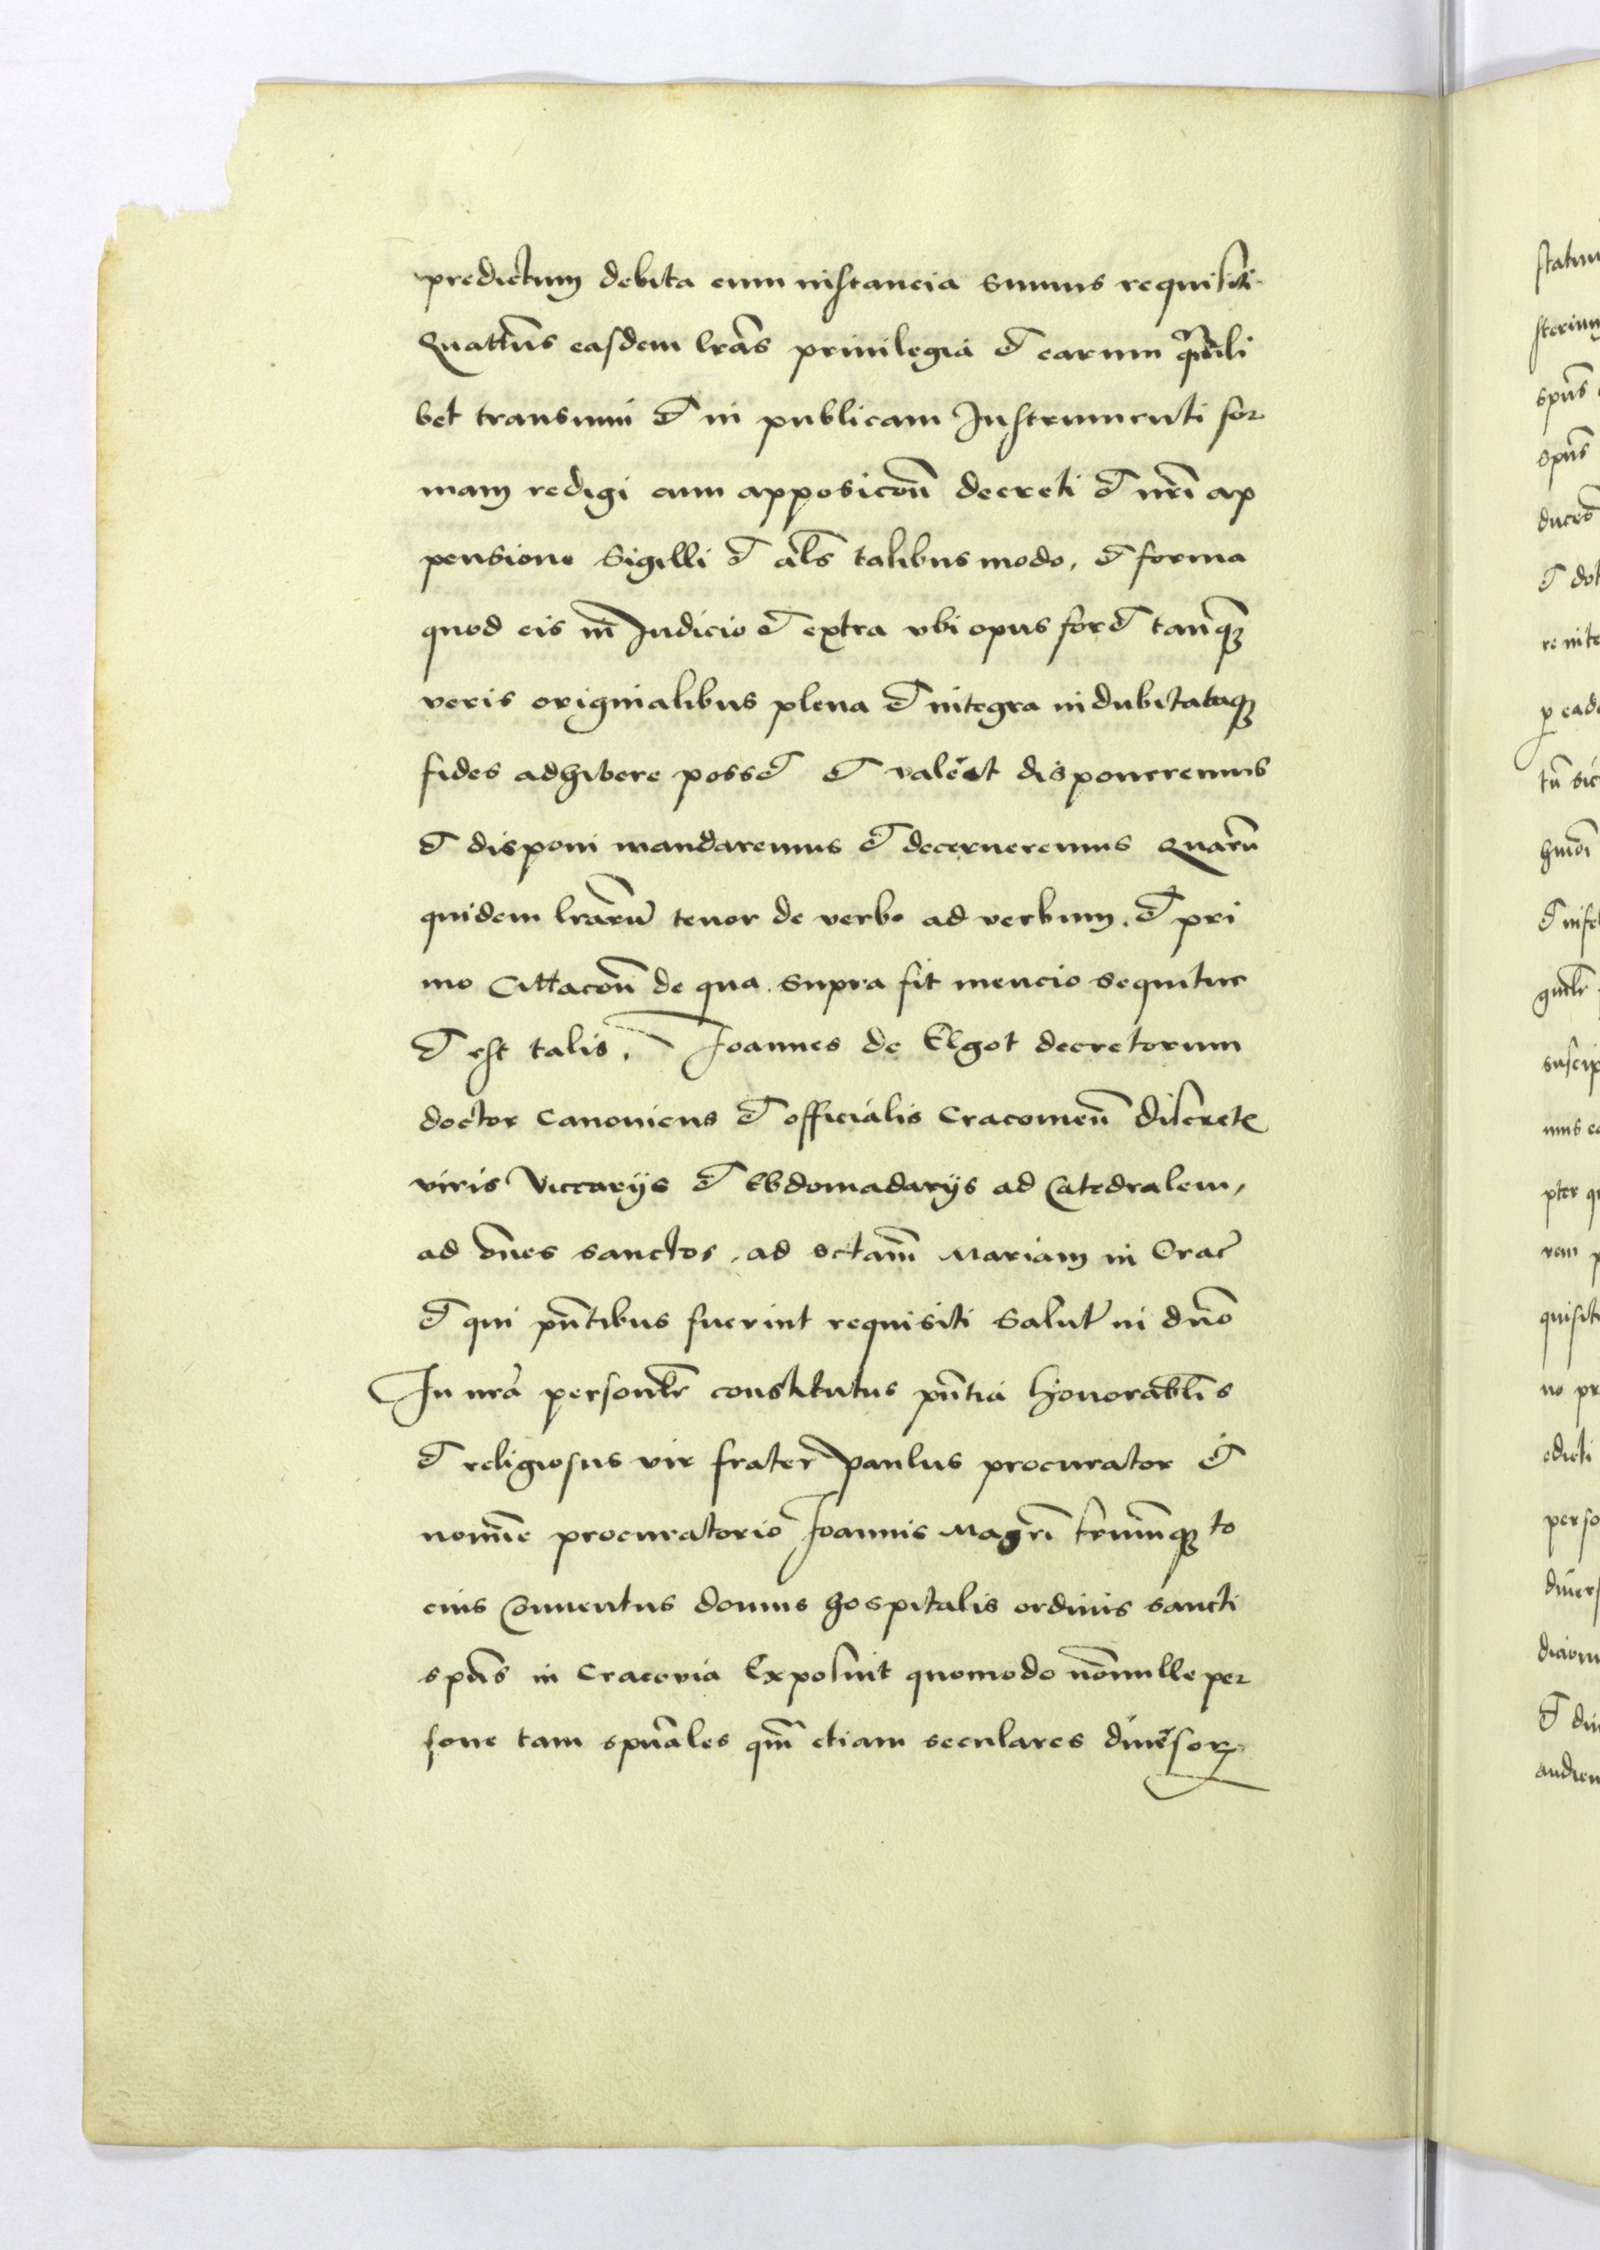 predictum debita cum instancia sumus requisiti
Quatten̄s easdem lrās privilegia et earum qūāli
bet transumi et in publicam Instrumenti for
mam redigi cum apposicoñ decreti et nrī ap
pensione Sigilli et aĺs talibus modo, et forma
quod eis in̄ Iudicio et extra vbi opus foret tanq̄ꝫ
veris originalibus plena et integra indubitataqꝫ
fides adhibere posset et valeat disponeremus
et disponi mandaremus et decerneremus Quarū
quidem lrārū tenor de verbo ad verbum. et pri
mo Cittacoñ de qua supra fit mencio sequitur
et est talis. Joannes de Elgot decretorum
doctor Canonicus et officialis Cracouien̄ discrete
viris Viccarijs et Ebdomadarijs ad Catedralem,
ad on̄es sanctos, ad sctam̄ Mariam in Crac̄
et qui pn̄tibus fuerint requisiti Salut̄ in dn̄o
In nrā personlr̄ constitutus pn̄tia honorabĺis
et religiosus vir frater Paulus procurator et
nomīe procuratorio Joannis Magrī frūmqꝫ to
cius Conuentus domus hospitalis ordinis sancti
spūs in Cracovia Exposuit quomodo nōnulle per
sone tam spūales qm̄ etiam seculares diuersoꝝ